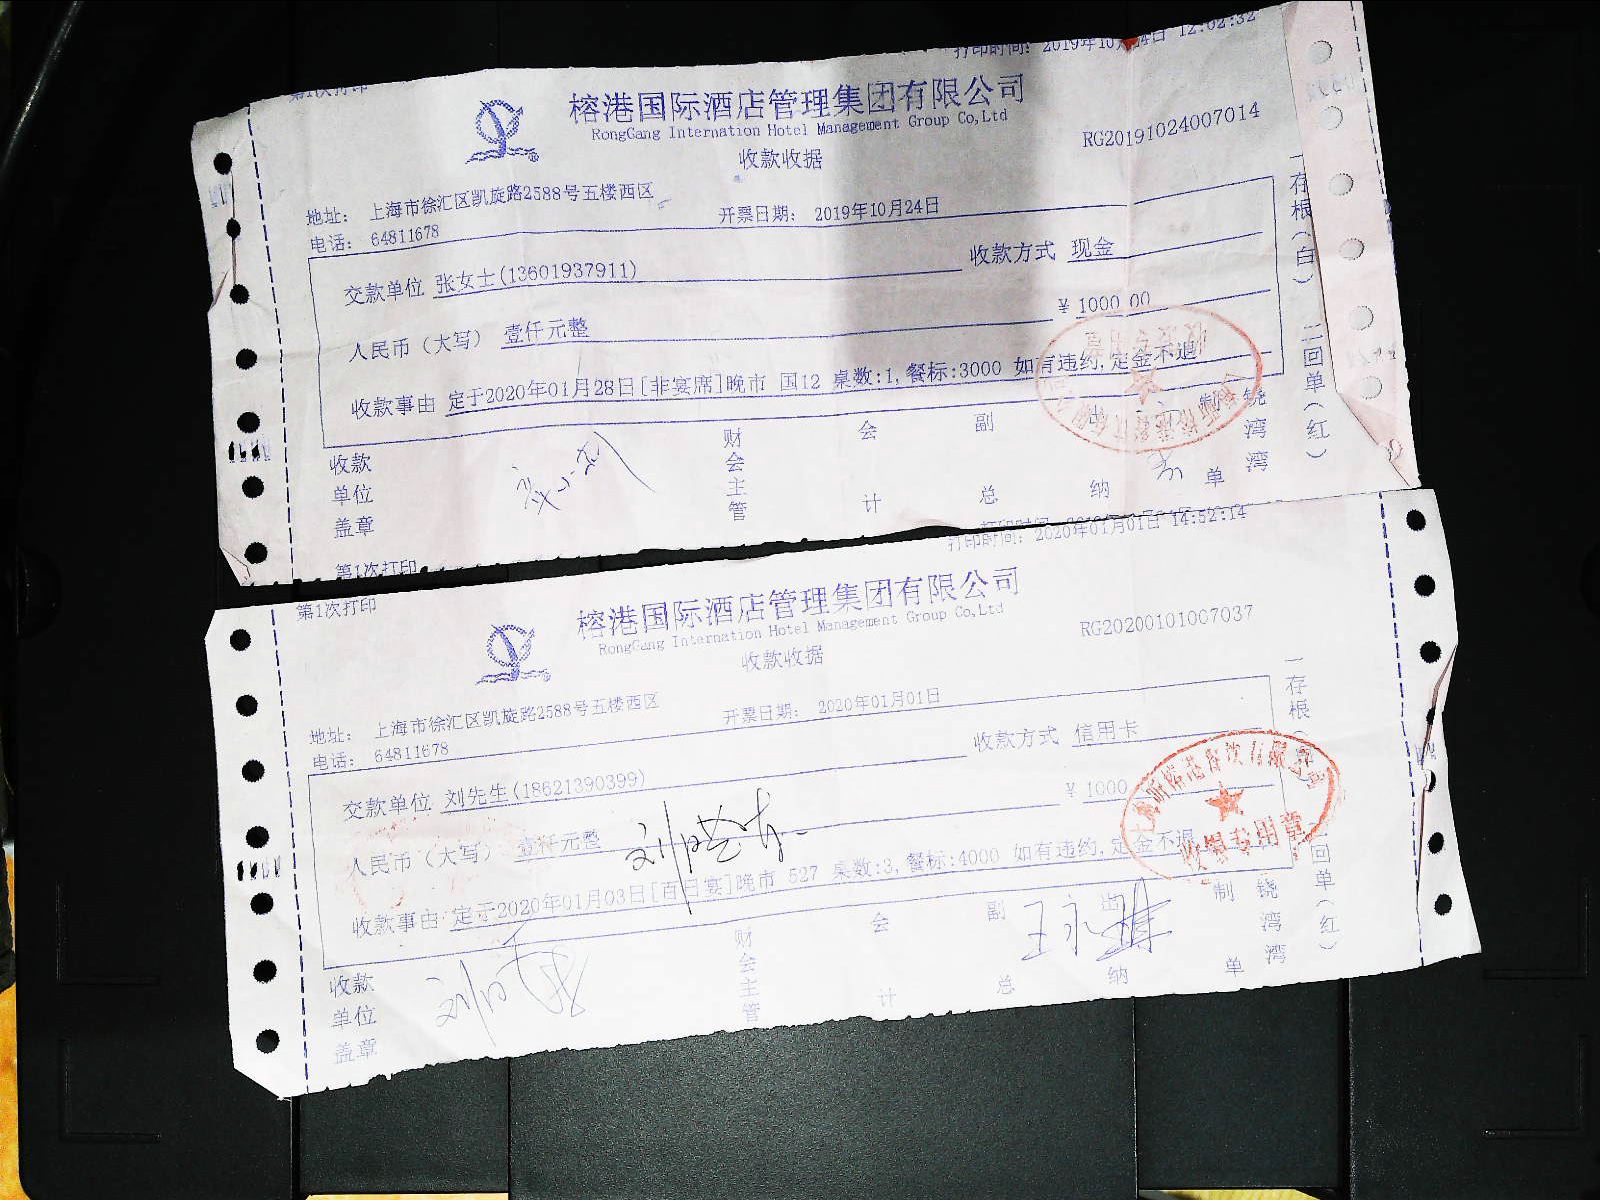 第1次打印
打印时间: 2019年10月24日 12:02:32
榕港国际酒店管理集团有限公司
RongGang Internation Hotel Management Group Co,Ltd
收款收据
RG20191024007014
地址: 上海市徐汇区凯旋路2588号五楼西区
电话: 64811678
开票日期: 2019年10月24日
交款单位 张女士(13601937911)
收款方式 现金
人民币(大写) 壹仟元整
¥ 1000.00
收款事由 定于2020年01月28日[非宴席]晚市 国12 桌数:1,餐标:3000 如有违约,定金不退
收款单位盖章
财会主管
会计
副总
出纳
制单
铙湾湾
一存根(白)
二回单(红)
第1次打印
第1次打印
打印时间: 2020年01月01日 14:52:14
榕港国际酒店管理集团有限公司
RongGang Internation Hotel Management Group Co,Ltd
收款收据
RG20200101007037
地址: 上海市徐汇区凯旋路2588号五楼西区
电话: 64811678
开票日期: 2020年01月01日
交款单位 刘先生(18621390399)
收款方式 信用卡
人民币(大写) 壹仟元整
¥ 1000
收款事由 定于2020年01月03日[百日宴]晚市 527 桌数:3,餐标:4000 如有违约,定金不退
收款单位盖章
财会主管
会计
副总
出纳
制单
铙湾湾
一存根
二回单(红)
收银专用章